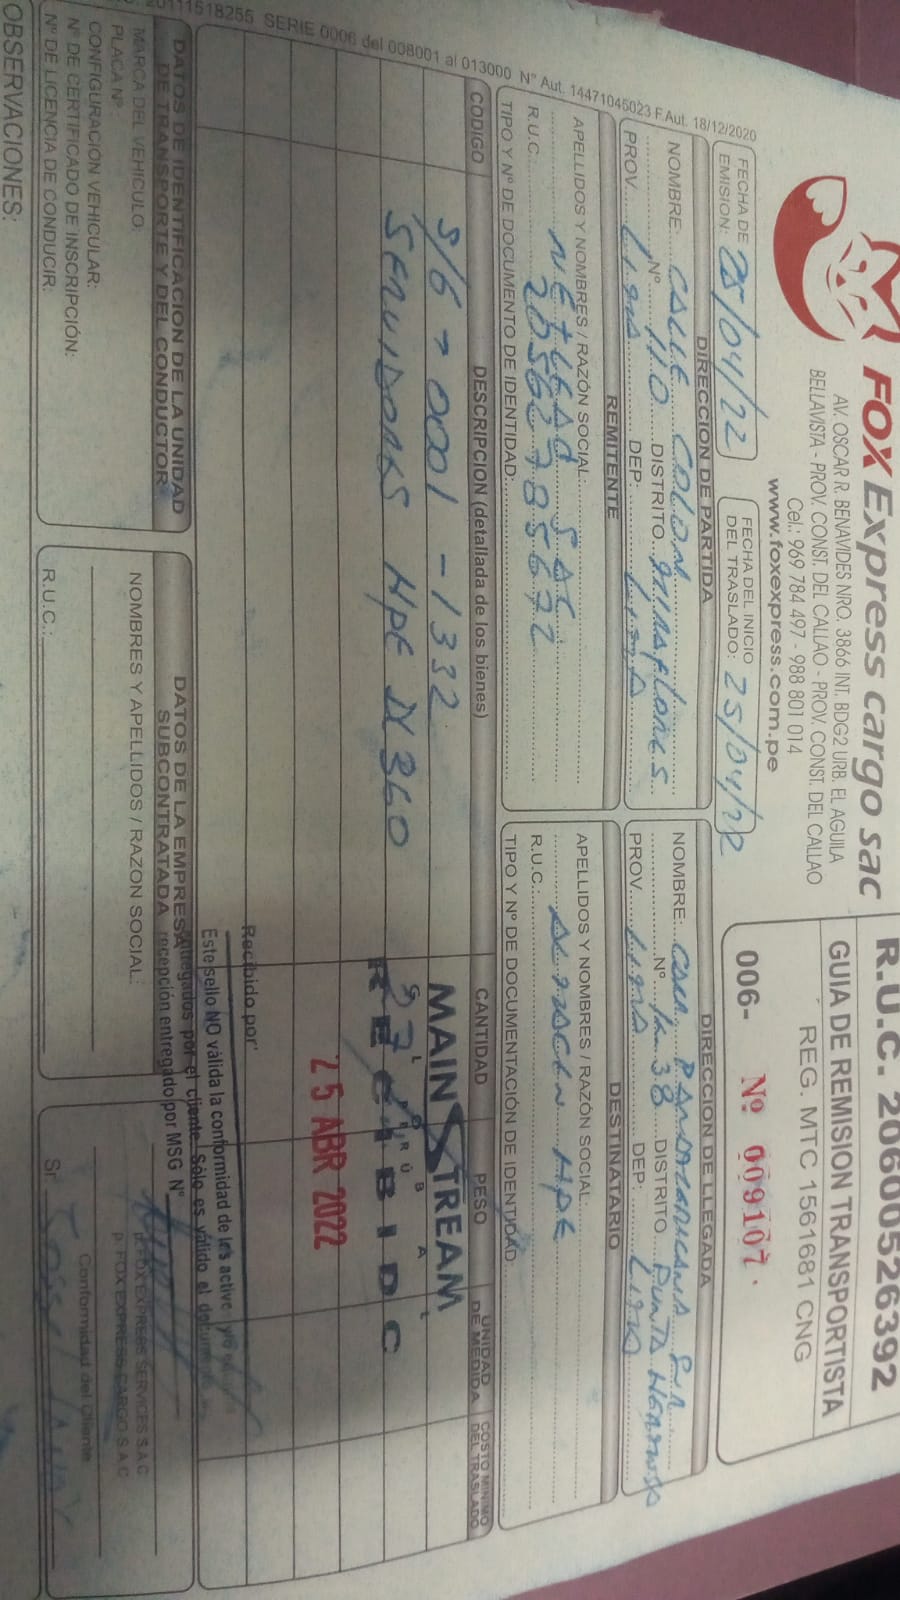 FOX Express cargo sac
AV. OSCAR R. BENAVIDES NRO. 3866 INT. BDG2 URB. EL AGUILA
BELLAVISTA - PROV. CONST. DEL CALLAO - PROV. CONST. DEL CALLAO
Cel.: 969 784 497 - 988 801 014
www.foxexpress.com.pe
R.U.C. 20600526392
GUIA DE REMISION TRANSPORTISTA
REG. MTC 1561681 CNG
006- Nº 009107
FECHA DE EMISION: 25/04/22
FECHA DEL INICIO DEL TRASLADO: 25/04/22
DIRECCION DE PARTIDA
NOMBRE: CALLE COLON
Nº 110 DISTRITO MIRAFLORES
PROV. LIMA DEP: LIMA
DIRECCION DE LLEGADA
NOMBRE: CARR. PANAMERICANA SUR
Nº Km 38 DISTRITO PUNTA HERMOSA
PROV. LIMA DEP: LIMA
REMITENTE
APELLIDOS Y NOMBRES / RAZÓN SOCIAL:
NETLEAD SAC
R.U.C. 20562785672
TIPO Y Nº DE DOCUMENTO DE IDENTIDAD:
DESTINATARIO
APELLIDOS Y NOMBRES / RAZÓN SOCIAL:
ALMACEN HPE
R.U.C.:
TIPO Y Nº DE DOCUMENTACIÓN DE IDENTIDAD
CODIGO DESCRIPCION (detallada de los bienes) CANTIDAD PESO UNIDAD DE MEDIDA COSTO MINIMO DEL TRASLADO
S/G 001 - 1332
SERVIDORES HPE DL360
MAINSTREAM
RECIBIDO
25 ABR 2022
Recibido por
Este sello NO válida la conformidad de los
entregados por el cliente. Sólo es válido el
recepción entregado por MSG Nº
DATOS DE IDENTIFICACION DE LA UNIDAD
DE TRANSPORTE Y DEL CONDUCTOR
MARCA DEL VEHICULO:
PLACA Nº:
CONFIGURACION VEHICULAR:
Nº DE CERTIFICADO DE INSCRIPCIÓN:
Nº DE LICENCIA DE CONDUCIR:
DATOS DE LA EMPRESA
SUBCONTRATADA
NOMBRES Y APELLIDOS / RAZON SOCIAL:
R.U.C.:
p. FOX EXPRESS SERVICES S.A.C
p. FOX EXPRESS CARGO S.A.C
Conformidad del Cliente
Sr.
OBSERVACIONES:
20111518255 SERIE 0006 del 008001 al 013000 Nº Aut. 14471045023 F.Aut. 18/12/2020